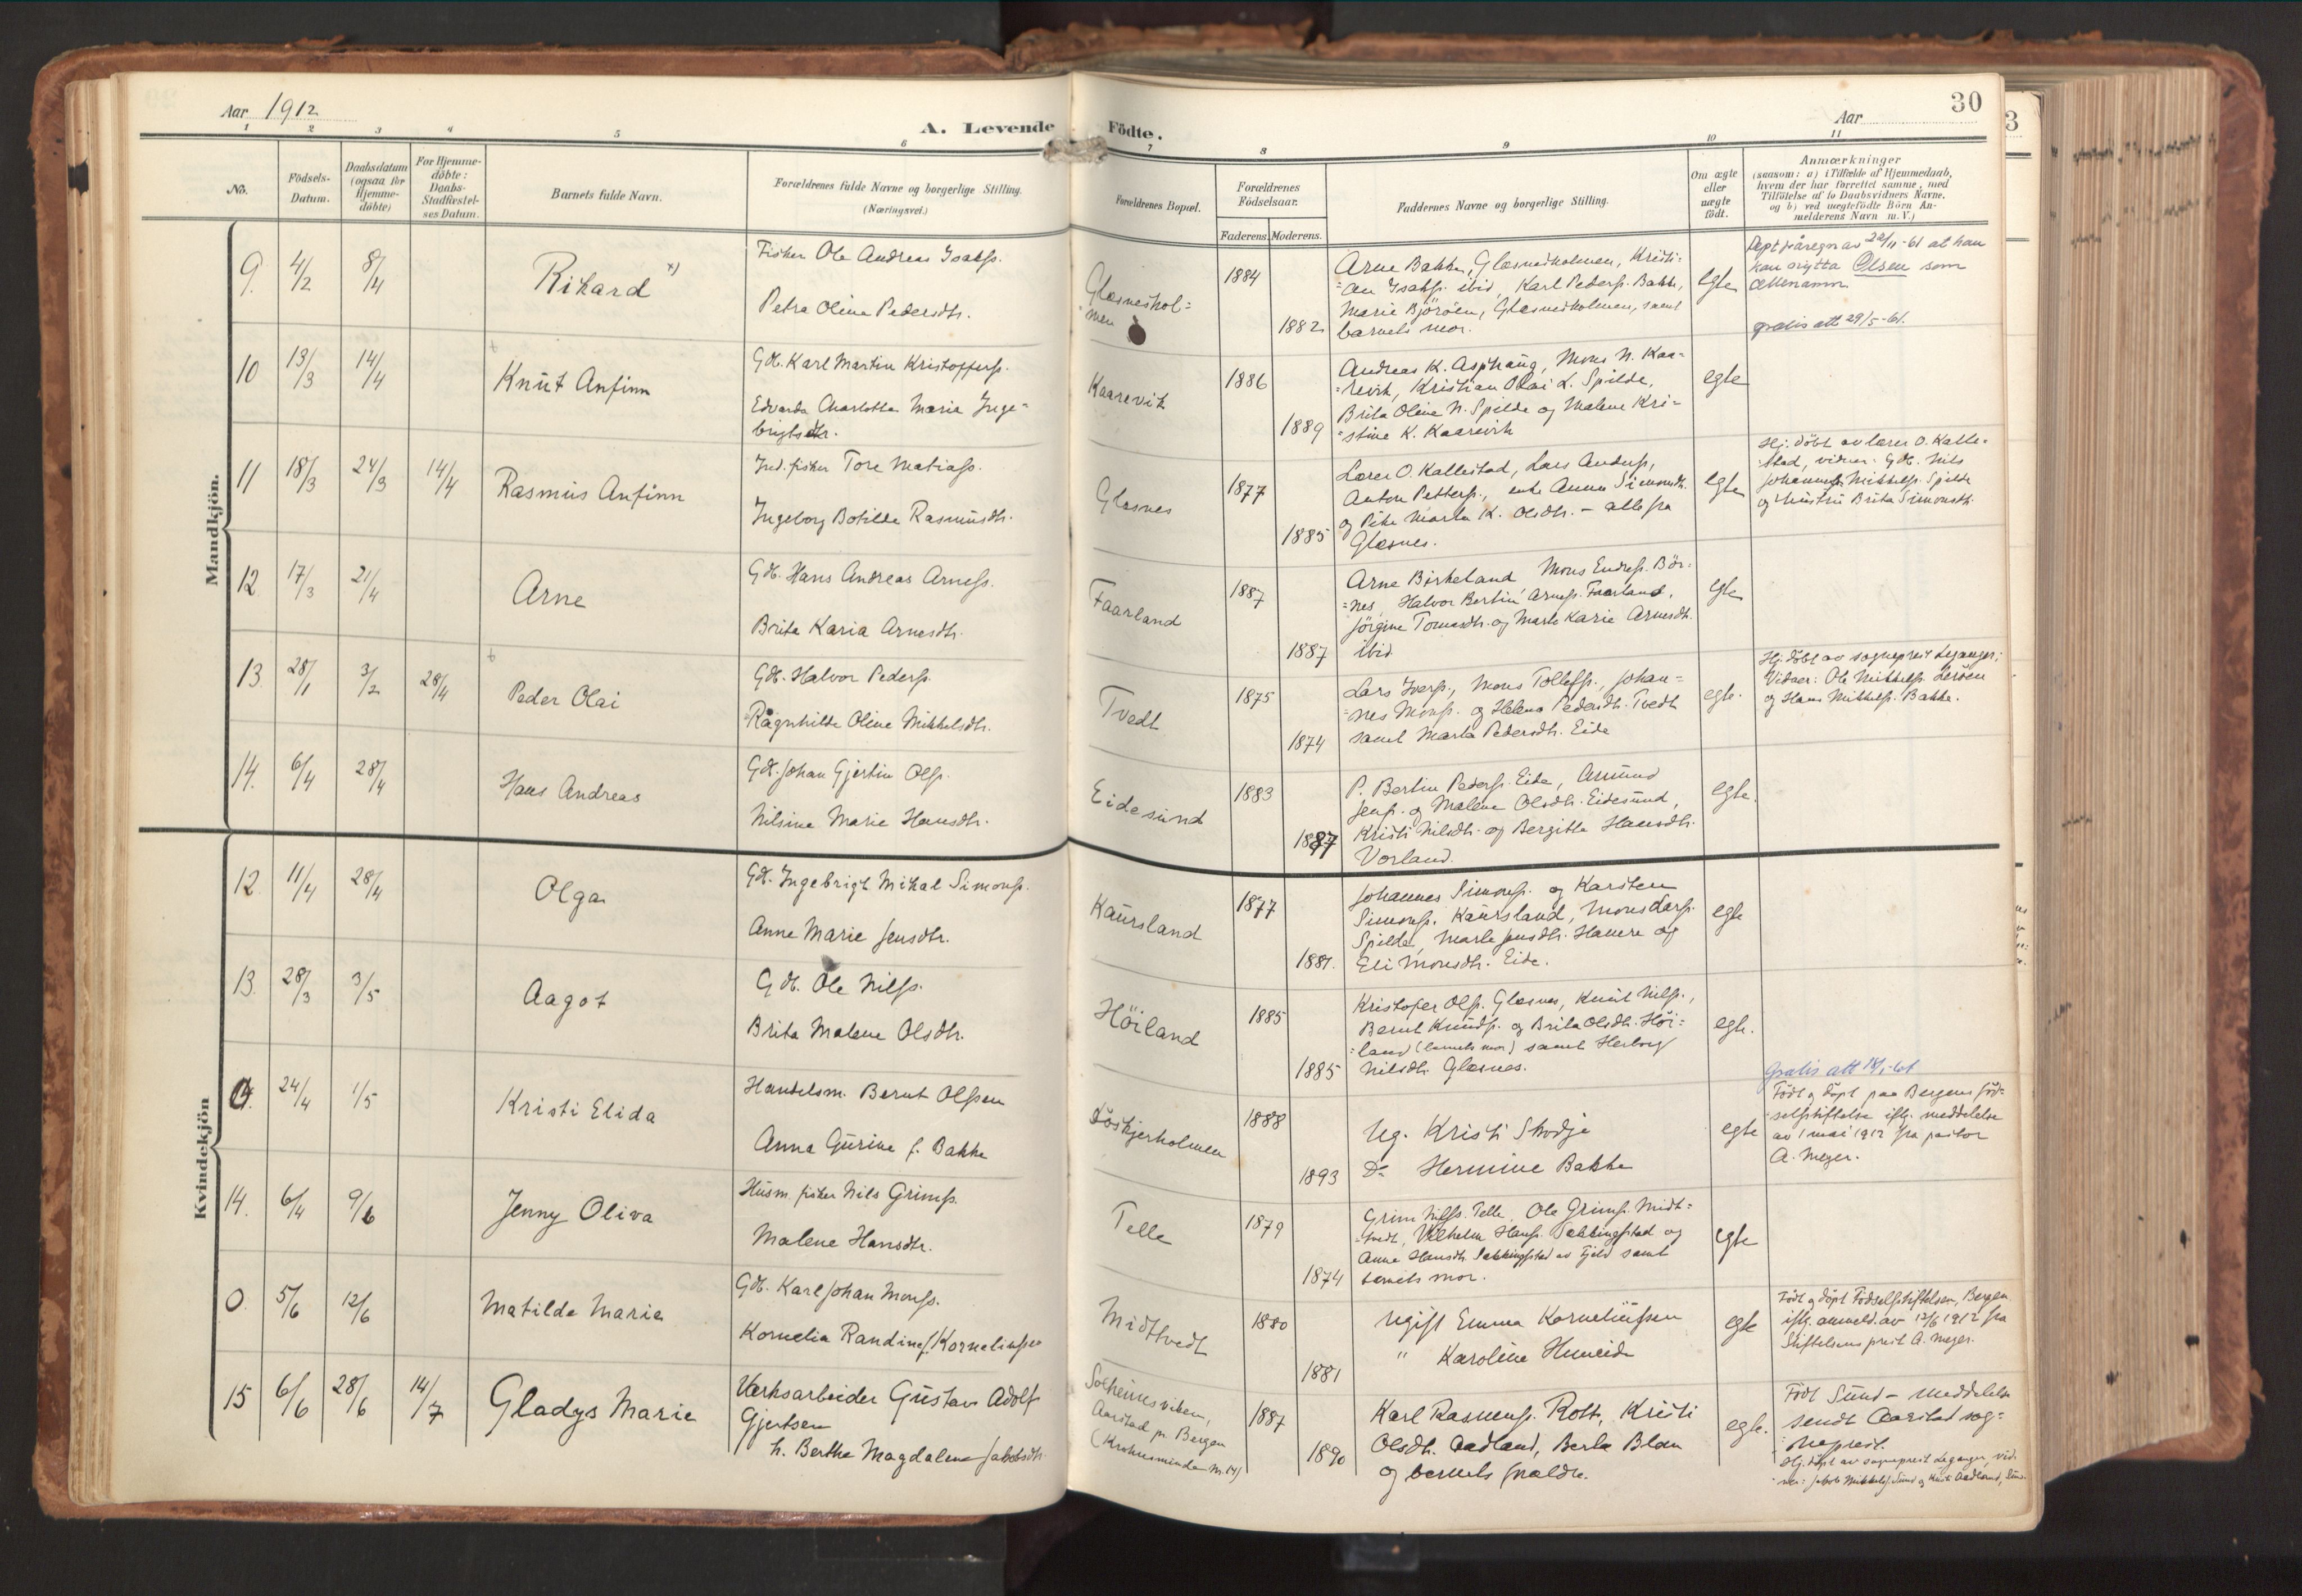 Aar 1912
A. Levende
Födte.
Aar
30
1 2 3 4 5 6 7 8 9 10 11
No.
Födsels-
Datum.
Daabsdatum
(ogsaa for
Hjemme-
döbte)
For Hjemme-
döbte:
Daabs-
Stadfæstel-
ses Datum.
Barnets fulde Navn.
Forældrenes fulde Navne og borgerlige Stilling.
(Næringsvei.)
Forældrenes Bopæl.
Forældrenes
Födselsaar.
Faderens. Moderens.
Faddernes Navne og borgerlige Stilling.
Om ægte
eller
uægte
födt.
Anmærkninger
(saasom: a) i Tilfælde af Hjemmedaab,
hvem der har forrettet samme, med
Tilföielse af to Daabsvidners Navne.
og b) ved uægtefödte Börn An-
melderens Navn m. V.)
Mandkjön.
9. 4/2 8/4 Rikard x)
Fisker Ole Andreas Isakss.
Petra Oline Pedersdtr.
Glæsneshol=
men
1884
1882
Arne Bakke, Glæsnesholmen, Kristi=
=an Isakss. ibid, Karl Peders. Bakke,
Marie Björöen, Glæsnesholmen, samt
barnets mor.
egte
at han
kan nytta Olsen som
ættenamn
gratis att 29/5-61.
10 13/3 14/4 Knut Anfinn
Gdb. Karl Martin Kristofferss.
Edvarda Charlotta Maria Inge=
brigtsdtr.
Kaarevik
1886
1889
Andreas K. Asphaug, Mons N. Kaa=
=revik, Kristian Olai L. Spilde,
Brita Oline N. Spilde og Malene Kri=
=stine K. Kaarevik
egte
11 18/3 24/3 14/4 Rasmus Anfinn
Ind. fisker Tore Matiass.
Ingeborg Botilde Rasmusdtr.
Glæsnes
1877
1885
Lærer O. Kallestad, Lars Anderss,
Anton Petterss., enke Anna Simonsdtr.
og Pike Marta K. Olsdtr. - alle fra
Glæsnes.
egte
Hj. döbt av lærer O. Kalle=
stad, vidner: Gdb. Nils
Johannes Mikkelss. Spilde
og hustru Brita Simonsdtr.
12 17/3 21/4 Arne
Gdb. Hans Andreas Arness.
Brita Karia Arnesdtr.
Faarland
1887
1887
Arne Birkeland Mons Endress. Bör=
=nes, Halvor Bertin Arness. Faarland,
Jörgine Tomasdtr. og Marta Karie Arnesdtr.
ibid
egte
13 28/1 3/2 28/4 Peder Olai
Gdb. Halvor Pederss.
Ragnhilde Oline Mikkelsdtr.
Tvedt
1875
1874
Lars Iverss., Mons Tollefss. Johan=
=nes Monss. og Helena Pedersdtr. Tvedt
samt Marta Pedersdtr. Eide
egte.
Hj. döbt av sogneprest Leganger;
Vidner: Ole Mikkelss. Leröen
og Hans Mikkelss. Bakke.
14. 6/4 28/4 Hans Andreas
Gdb. Johan Gjertin Olss.
Nilsine Marie Hansdtr.
Eidesund
1883
1887
P. Bertin Pederss. Eide, Amund
Jenss. og Malene Olsdtr. Eidesund,
Kristi Nilsdtr. og Bergitta Hansdtr.
Vorland.
egte.
Kvindekjön
12. 11/4 28/4 Olga
Gdb. Ingebrigt Mikal Simonss.
Anne Marie Jensdtr.
Kaursland
1877
1881.
Johannes Simonss. og Karsten
Simonss. Kaursland, Mons Larss.
Spilde, Marta Jensdtr. Hauere og
Eli Monsdtr. Eide.
egte
13. 28/3 3/5 Aagot
Gdb. Ole Nilss.
Brita Malene Olsdtr.
Höiland
1885
1885
Kristofer Olss. Glæsnes, Knut Nilss.,
Bernt Knudss. og Brita Olsdtr. Höi=
=land (barnets mor) samt Herborg
Nilsdtr. Glæsnes.
egte.
24/4 1/5 Kristi Elida
Handelsm. Bernt Olssen
Anna Gurine f. Bakke
Löskjerholmen
1888
1893
Ug. Kristi Skodje
Do Hermine Bakke
egte
Födt og döpt paa Bergens föd=
=selsstiftelse iflg. meddelelse
av 1 mai 1912 fra pastor
A. Meyer.
14. 6/4 9/6 Jenny Oliva
Husm. fisker Nils Grimss.
Malene Hansdtr.
Telle
1879
1874
Grim Nilss. Telle, Ole Grimss. Midt=
=tvedt, Vilhelm Hanss. Tækkingstad og
Anna Hansdtr. Tækkingstad av Fjeld samt
barnets mor.
egte
0. 5/6 12/6 Matilde Marie
Gdb. Karl Johan Monss.
Kornelia Randine f. Korneliussen
Midttvedt
1880
1881
Ugift Emma Korneliussen
" Karoline Hummeide
egte
Födt og döpt Födselsstiftelsen, Bergen
iflg. anmeld. av 15/6 1912 fra
Stiftelsens prest A. Meyer.
15 6/6 28/6 14/7 Gladys Marie
Værksarbeider Gustav Adolf
Gjertsen
h. Berthe Magdalena Jakobsdtr.
Solheimsviken,
Aarstad pr. Bergen
1887
1890
Karl Rasmuss. Rott, Kristi
Olsdtr. Aadland, Berta Blom
og barnets foreldre.
egte.
Födt Sund - meddelelse
sendt Aarstad sog=
neprest.
Hj. döpt av sogneprest Leganger, vid=
ner: Jakob Mikkelss. Sund og Kristi Aadland, Sund